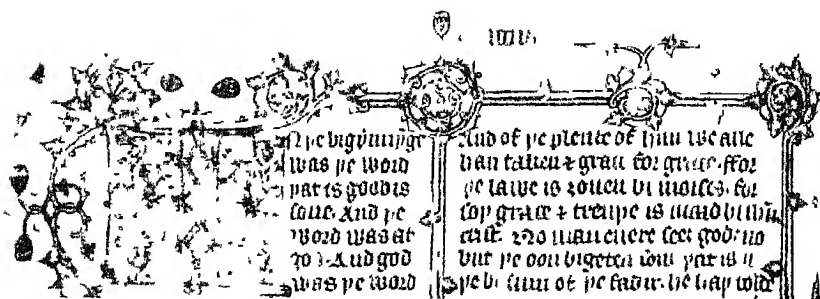 N þe bigynnynge
was þe word
þat is goddis
sone. And þe
word was at
god. And god
was þe word
And of þe plente of hym we alle
han taken & grace for grace. ffor
þe lawe is ȝouen bi moises. for
soþ grace & treuþe is maad bi ihū
crist. No man euere seeȝ god. no
but þe oon bigeten sone þat is i
þe bosum of þe fadir. he haþ told